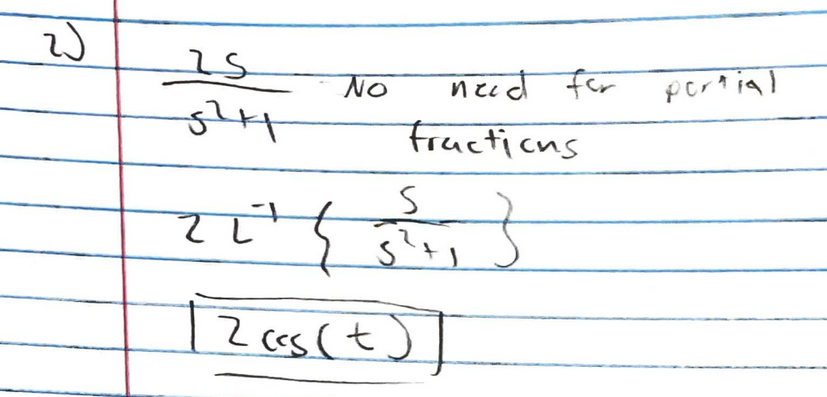 2)
2s/(s²+1) No need for partial
fractions
2 L⁻¹ { s/(s²+1) }
2 cos(t)